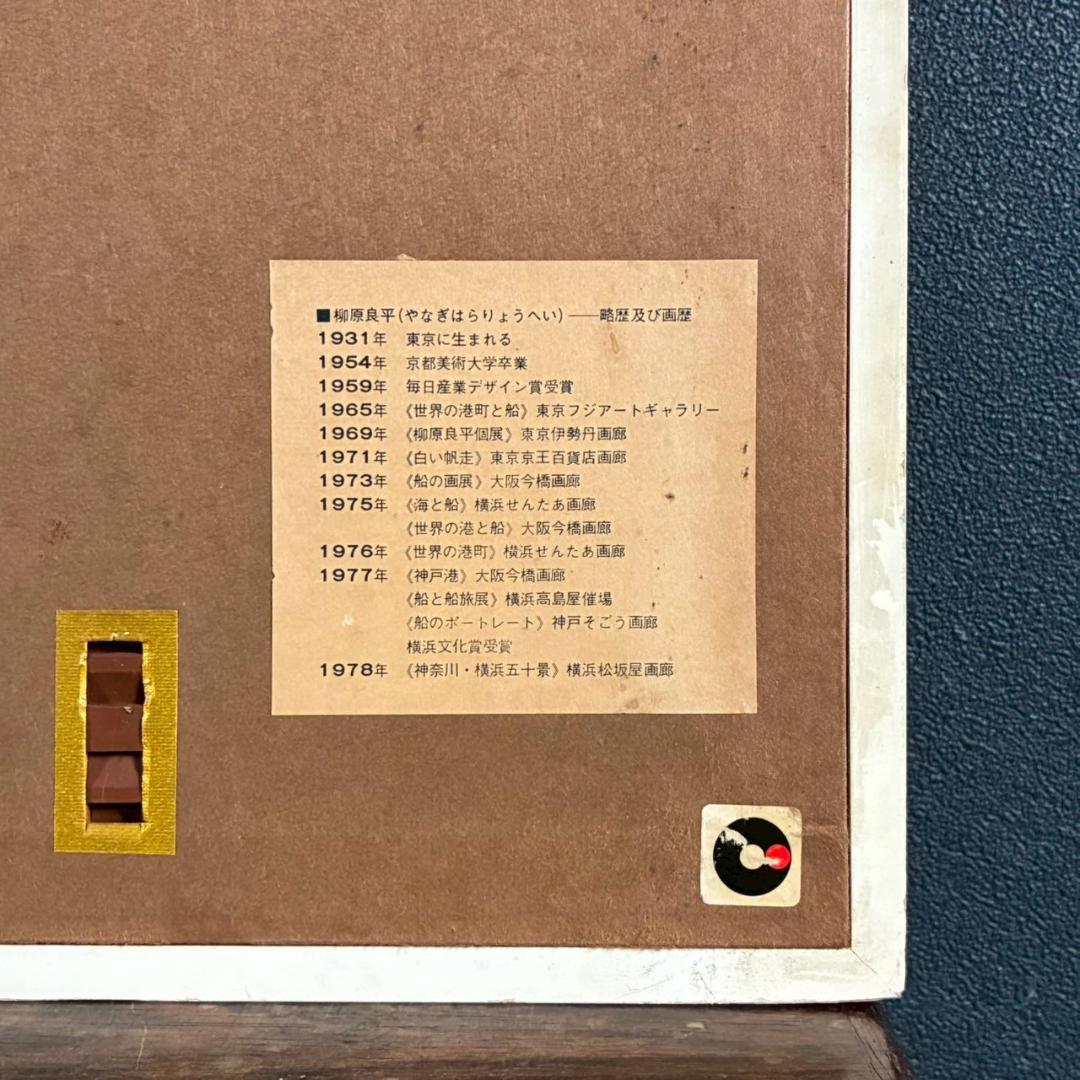 ■柳原良平(やなぎはらりょうへい)——略歴及び画歴
1931年 東京に生まれる
1954年 京都美術大学卒業
1959年 毎日産業デザイン賞受賞
1965年 《世界の港町と船》東京フジアートギャラリー
1969年 《柳原良平個展》東京伊勢丹画廊
1971年 《白い帆走》東京京王百貨店画廊
1973年 《船の画展》大阪今橋画廊
1975年 《海と船》横浜せんたあ画廊
《世界の港と船》大阪今橋画廊
1976年 《世界の港町》横浜せんたあ画廊
1977年 《神戸港》大阪今橋画廊
《船と船旅展》横浜高島屋催場
《船のポートレート》神戸そごう画廊
横浜文化賞受賞
1978年 《神奈川・横浜五十景》横浜松坂屋画廊